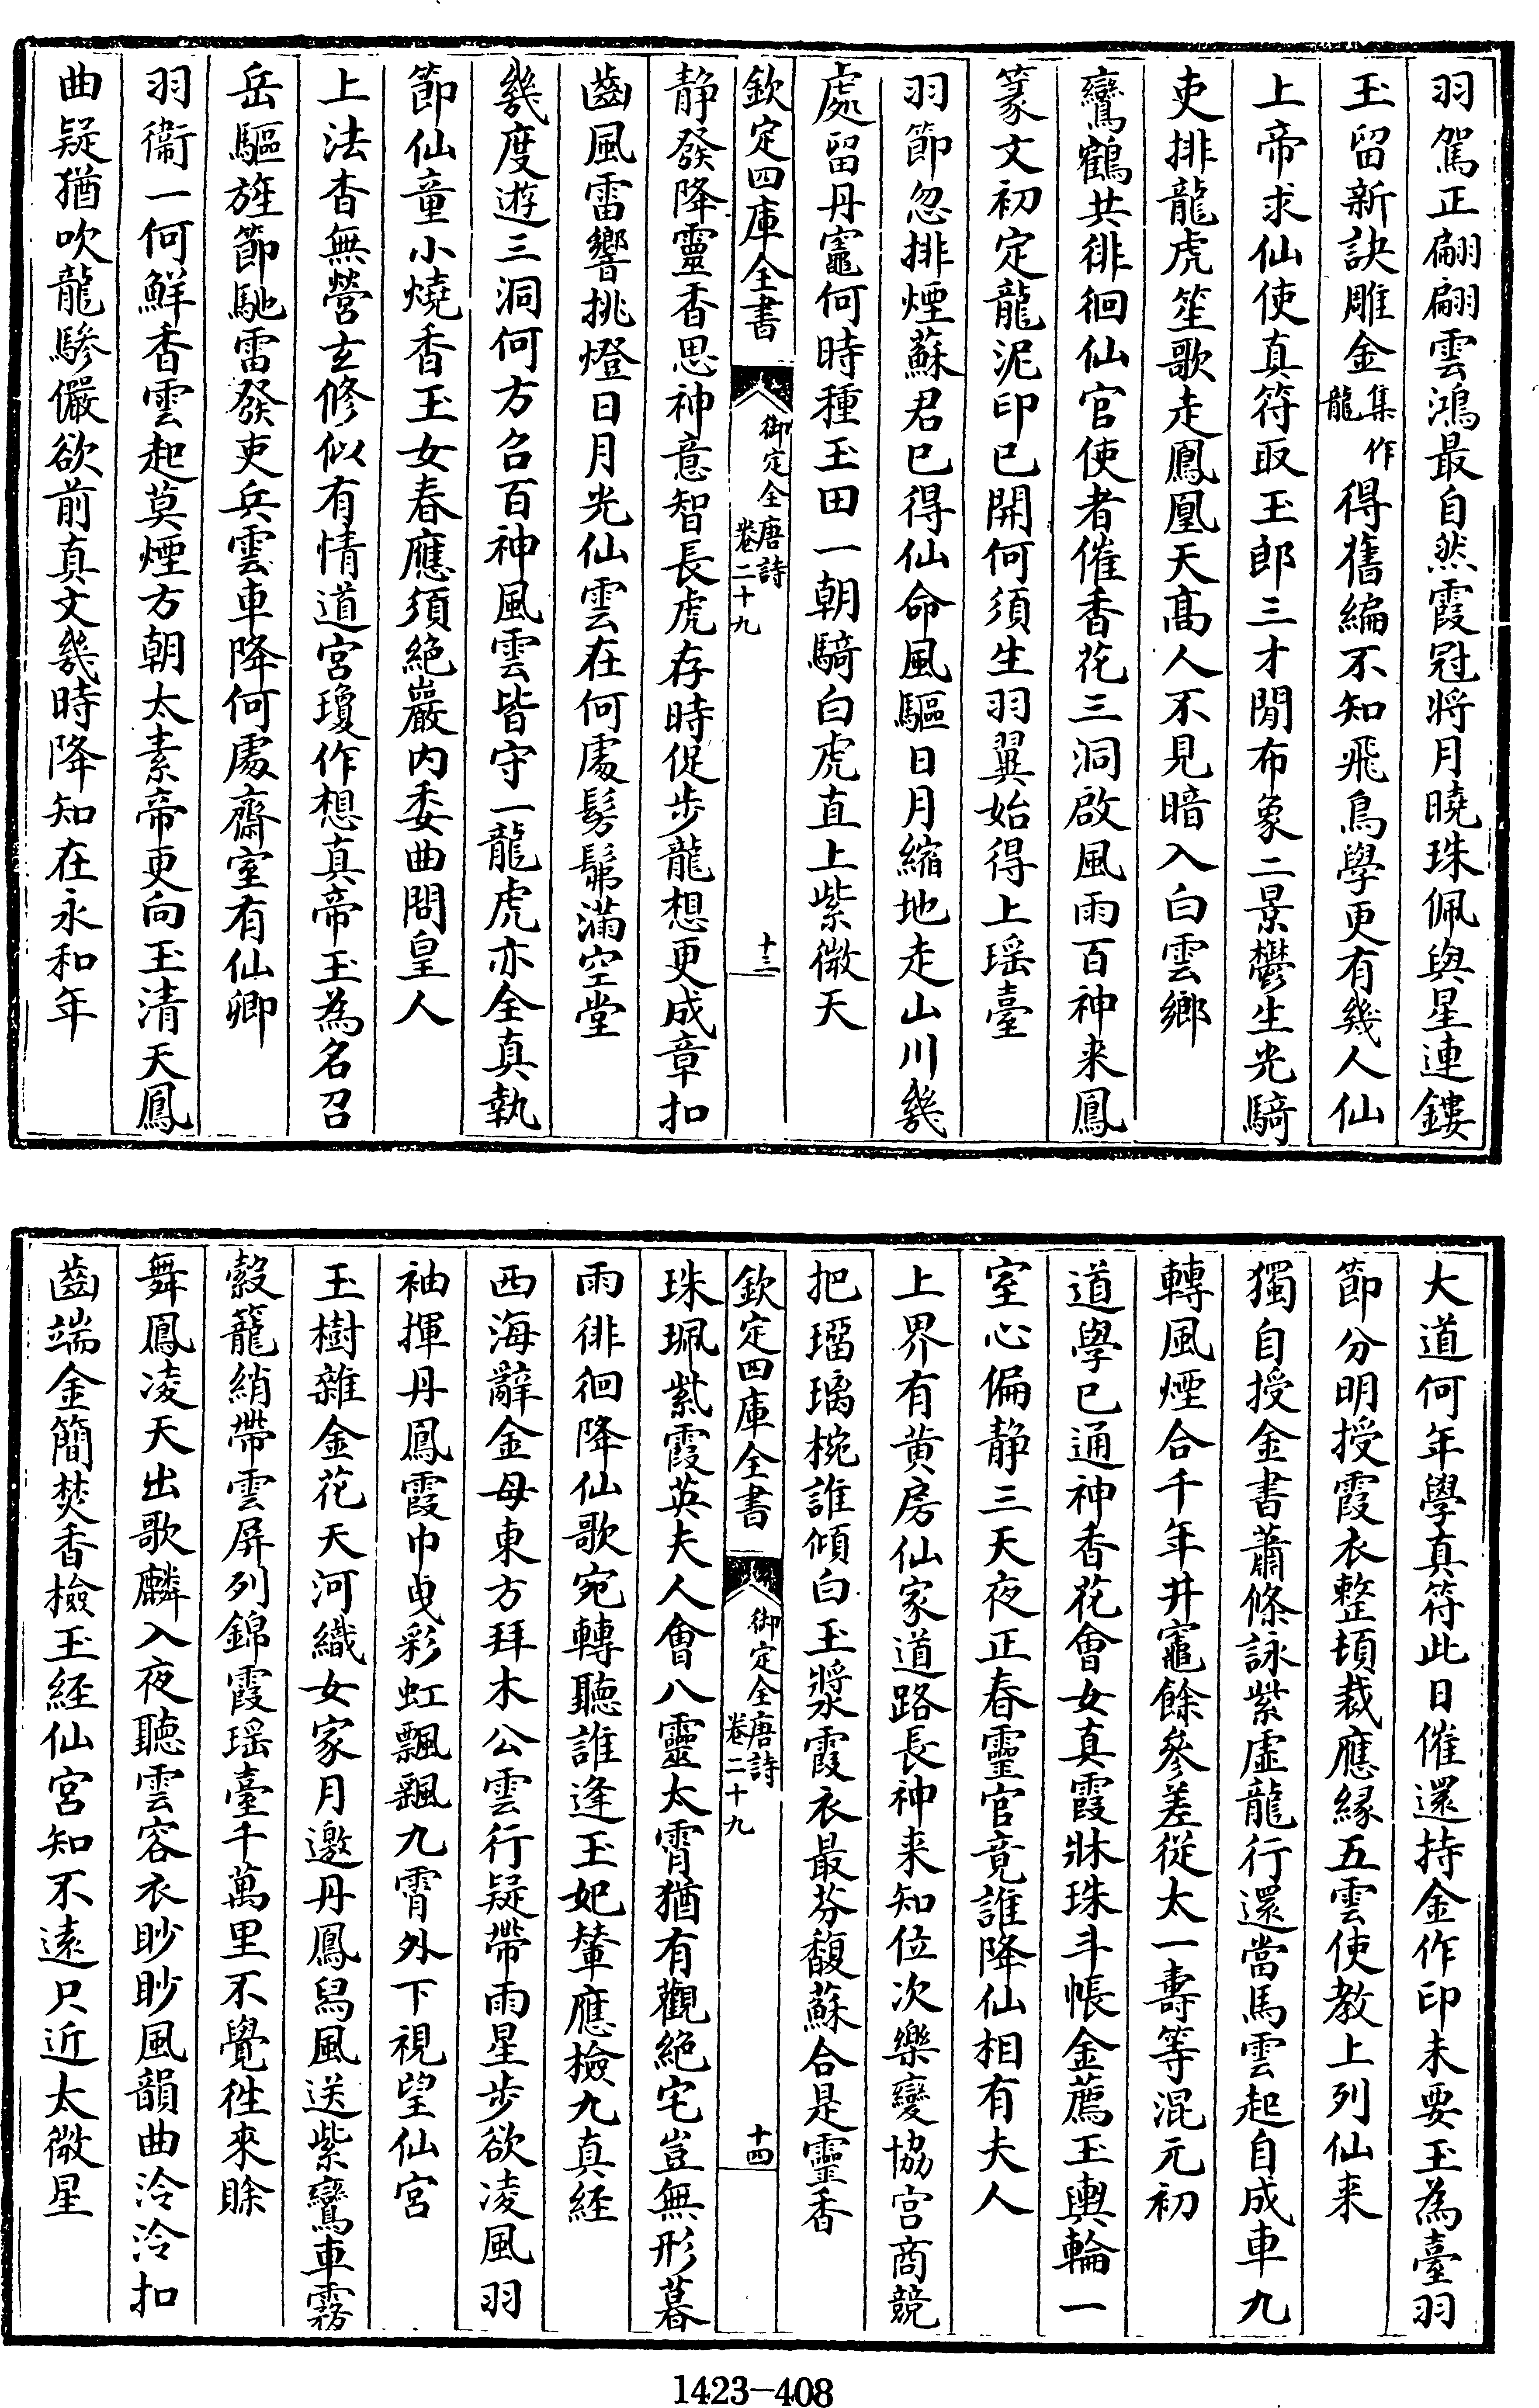 羽駕正翩翩雲鴻最自然霞冠將月曉珠佩與星連鏤
玉留新訣雕金集作龍得舊編不知飛鳥學更有幾人仙
上帝求仙使真符取玉郎三才閒布象二景鬱生光騎
吏排龍虎笙歌走鳳凰天髙人不見暗入白雲鄉
鸞鶴共徘徊仙官使者催香花三洞啟風雨百神来鳳
篆文初定龍泥印已開何須生羽翼始得上瑶臺
羽節忽排煙蘇君已得仙命風驅日月縮地走山川幾
處留丹竈何時種玉田一朝騎白虎直上紫微天
欽定四庫全書
御定全唐詩
卷二十九
十三
静發降靈香思神意智長虎存時促歩龍想更成章扣
齒風雷響挑燈日月光仙雲在何處髣髴滿空堂
幾度遊三洞何方召百神風雲皆守一龍虎亦全真執
節仙童小燒香玉女春應須絶巖内委曲問皇人
上法杳無營玄修似有情道宫瓊作想真帝玉為名召
岳驅旌節馳雷發吏兵雲車降何處齋室有仙卿
羽衞一何鮮香雲起莫煙方朝太素帝更向玉清天鳳
曲疑猶吹龍驂儼欲前真文幾時降知在永和年
大道何年學真符此日催還持金作印未要玉為臺羽
節分明授霞衣整頓裁應縁五雲使教上列仙来
獨自授金書蕭條詠紫虚龍行還當馬雲起自成車九
轉風煙合千年井竈餘參差從太一壽等混元初
道學已通神香花會女真霞牀珠斗帳金薦玉輿輪一
室心偏静三天夜正春靈官竟誰降仙相有夫人
上界有黄房仙家道路長神来知位次樂變協宫商競
把璢璃椀誰傾白玉漿霞衣最芬馥蘇合是靈香
欽定四庫全書
御定全唐詩
卷二十九
十四
珠珮紫霞英夫人會八靈太霄猶有觀絶宅豈無形暮
雨徘徊降仙歌宛轉聽誰逢玉妃輦應檢九真経
西海辭金母東方拜木公雲行疑帶雨星歩欲凌風羽
袖揮丹鳳霞巾曵彩虹飄飄九霄外下視望仙宫
玉樹雜金花天河織女家月邀丹鳳舄風送紫鸞車霧
縠籠綃帶雲屏列錦霞瑶臺千萬里不覺徃來賒
舞鳳凌天出歌麟入夜聽雲容衣眇眇風韻曲泠泠扣
齒端金簡焚香檢玉経仙宫知不遠只近太微星
1423-408